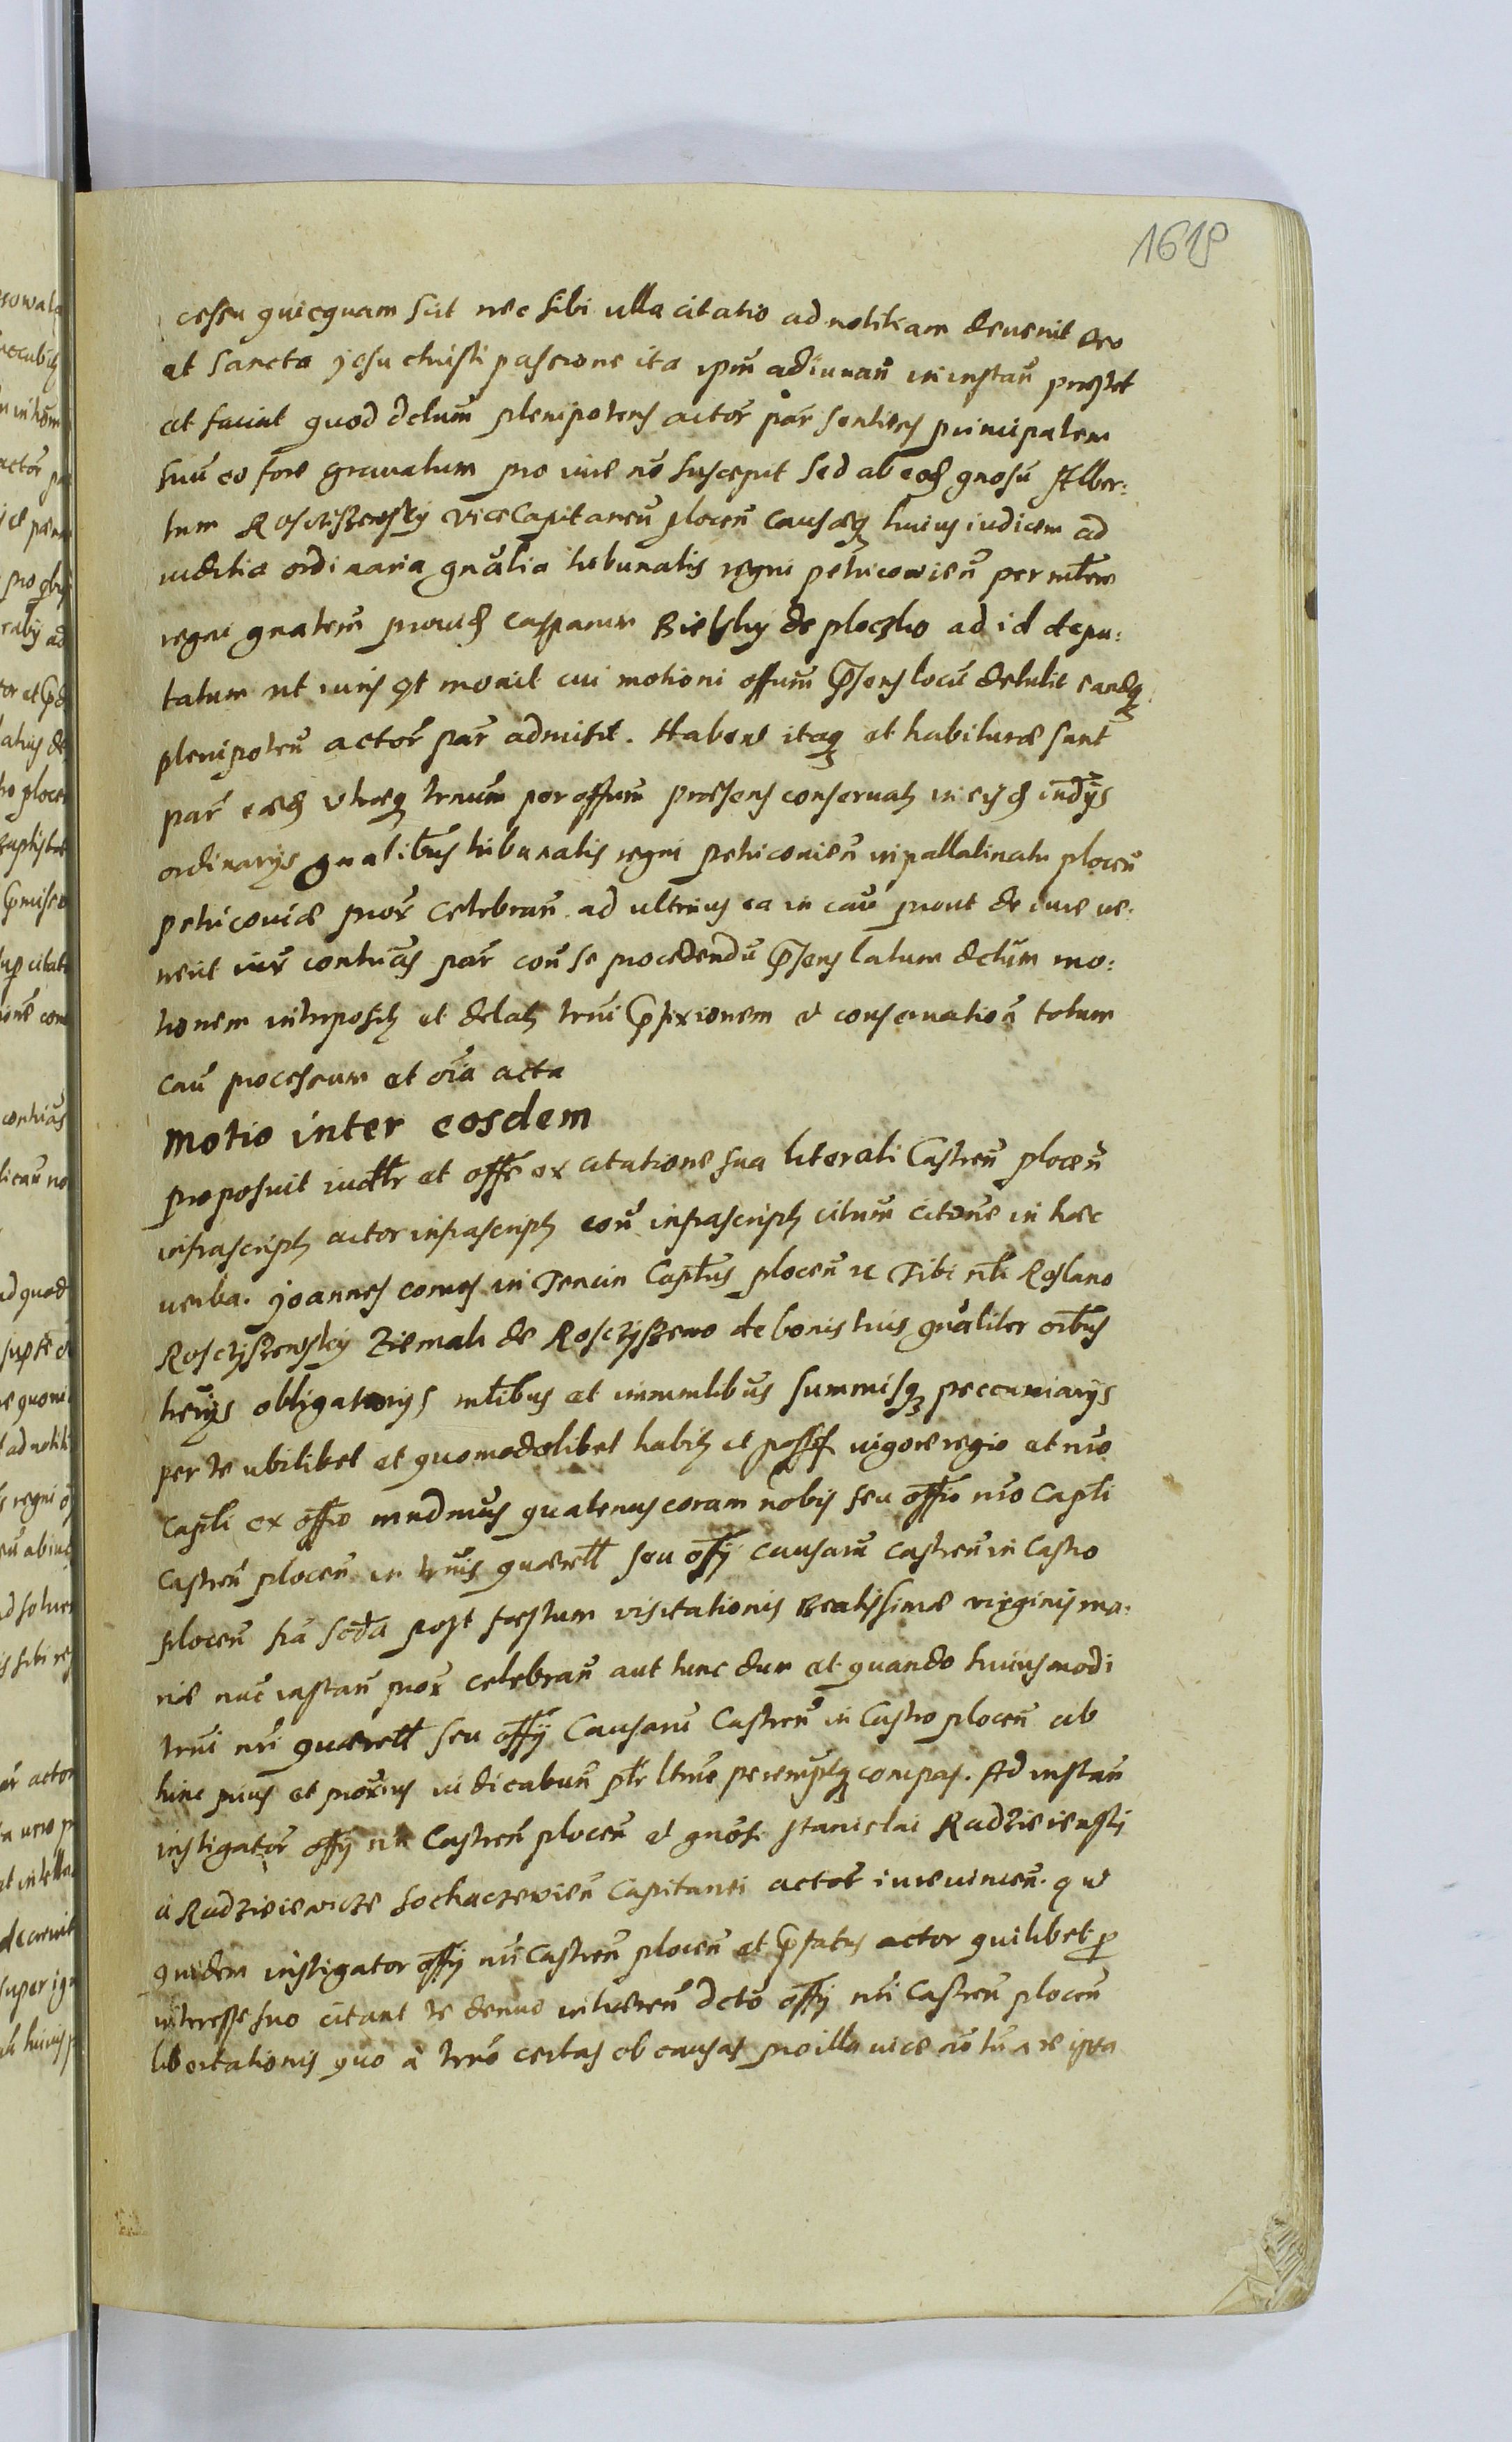 1619
cessu quicquam scit nec sibi ulla citatio ad notitiam devenit deo
et sancta Jesu christi passione ita ipm̄ adiuvan̄ in instan̄ prestet
et faciat quod dctum plenipotens actor̄ par̄ sentiens principalem
suū eo fore gravatum pro iure nō suscepit sed ab eod gnosū Alber:
tum Roscziszewsky viceCapitaneū plocen̄ causaeq̨ huius iudicem ad
iudicia ordinaria gnālia tribunalis regni petricovien̄ per mltem
regni gnalem provid Casparum Bielsky de ploczko ad id depu:
tatum ut iuris ē̄t movit cui motioni offum p̄sens locū detulit eandq̨
plenipoten̄ actor̄ par̄ admisit. Habent itaq̨ et habiturae sunt
par̄ eaed utraeq̨ trnum per offum praesens conservatȝ in eisd iudijs
ordinarijs gnalibus tribunalis regni petricovien̄ in pallatinatu plocen̄
petricoviae prox̄ celebran̄ ad ulterius ea in cau prout de iure ve:
nerit iur̄ contrās par̄ con̄ se procedendū p̄sens latum dctum mo:
tionem interpositȝ et delatȝ trni p̄fixionem et conservationē totum
cau processum et oīa acta
Motio inter eosdem
proposuit iudtr et offe ex citatione sua literali Castren̄ plocen̄
infrascriptȝ actor infrascriptȝ con̄ infrascriptȝ citum citone in haec
verba. Joannes comes in Tencin Captus plocen̄ zc Tibi nli Roslano
Rosczyszewsky Ziemak de Rosczyszewo de bonis tuis gnāliter oībus
herijs obligatorijs mltbus et immmlibus summisq̨ peccuniarijs
per te ubilibet et quomodolibet habitȝ et possess vigore regio et nro
Capli ex offo mndmus quatenus coram nobis seu offo nro Capli
Castren̄ plocen̄ in trnis quaerell seu offij causarū castren̄ in Castro
plocen̄ fia scda post festum visitationis Beatissimae virginis ma:
riae nūc instan̄ prox̄ celebran̄ aut tunc dum et quando huiusmodi
trni nri quaerell seu offij Causarū Castren̄ in Castro plocen̄ ab
hinc prius et proxius iudicabun̄ pltr ltme peremptq̨ compas. Ad instan̄
instigator̄ offij nri Castren̄ plocen̄ et gnosi Stanislai Radzieiensti
a Radzieiewicze Sochaczewien̄ Capitanei actor̄ iurevincen̄. qui
quidem instigator offij nri Castren̄ plocen̄ et p̄fatus actor quilibet p̄
interesse suo citant te denuo inhaeren̄ dcto offij nri Castren̄ plocen̄
libertationis quo a trno certas ob causas pro illa vice nō tn̄ a re ipsa